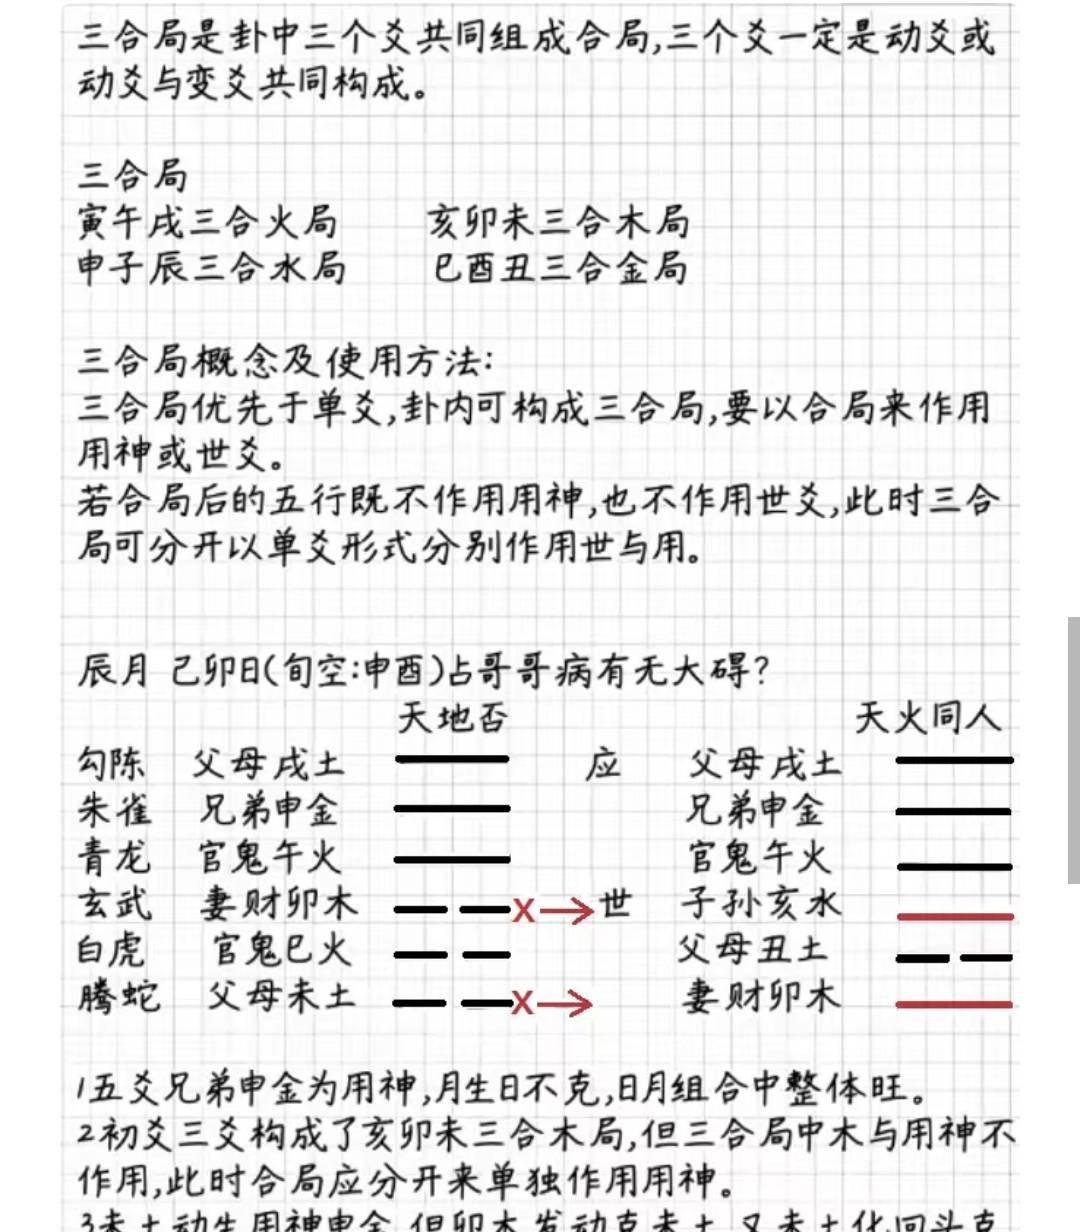 三合局是卦中三个爻共同组成合局,三个爻一定是动爻或
动爻与变爻共同构成。
三合局
寅午戌三合火局 亥卯未三合木局
申子辰三合水局 巳酉丑三合金局
三合局概念及使用方法:
三合局优先于单爻,卦内可构成三合局,要以合局来作用
用神或世爻。
若合局后的五行既不作用用神,也不作用世爻,此时三合
局可分开以单爻形式分别作用世与用。
辰月 己卯日(旬空:申酉)占哥哥病有无大碍?
天地否 天火同人
勾陈 父母戌土 应 父母戌土
朱雀 兄弟申金 兄弟申金
青龙 官鬼午火 官鬼午火
玄武 妻财卯木 X 世 子孙亥水
白虎 官鬼巳火 父母丑土
腾蛇 父母未土 X 妻财卯木
1五爻兄弟申金为用神,月生日不克,日月组合中整体旺。
2初爻三爻构成了亥卯未三合木局,但三合局中木与用神不
作用,此时合局应分开来单独作用用神。
3未土动生用神申金,但卯木发动克未土,又未土化回头克